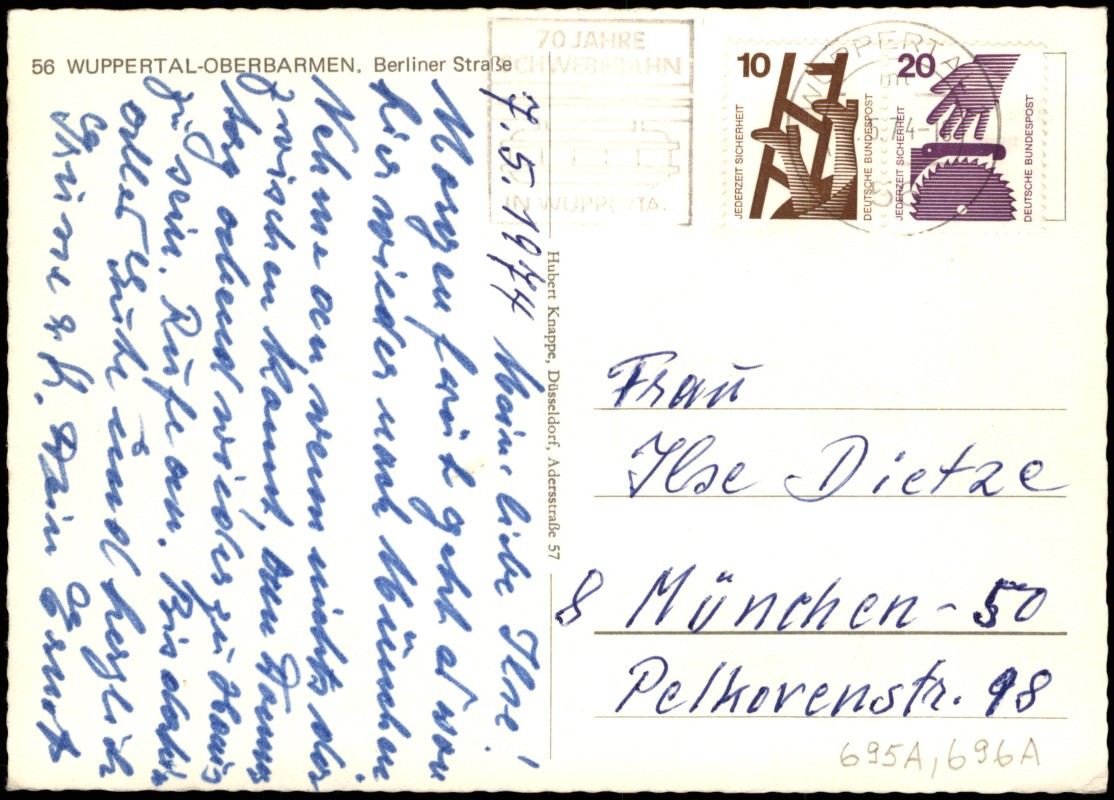 56 WUPPERTAL-OBERBARMEN, Berliner Straße
70 JAHRE
SCHWEBEBAHN
IN WUPPERTAL
WUPPERTAL
10
JEDERZEIT SICHERHEIT
DEUTSCHE BUNDESPOST
20
JEDERZEIT SICHERHEIT
DEUTSCHE BUNDESPOST
7.5.1974 Meine liebe Ilse!
Morgen früh geht es von
hier wieder nach München
Nehme an wenn nichts da
zwischen kommt, am Donners
tag abend wieder zu Hause
zu sein. Rufe an. Bis dahin
alles Gute und herzlich
Grüsse & K. Dein Ernst
Hubert Knappe, Düsseldorf, Adersstraße 57
Frau
Ilse Dietze
8 München-50
Pelkovenstr. 98
695A, 696A